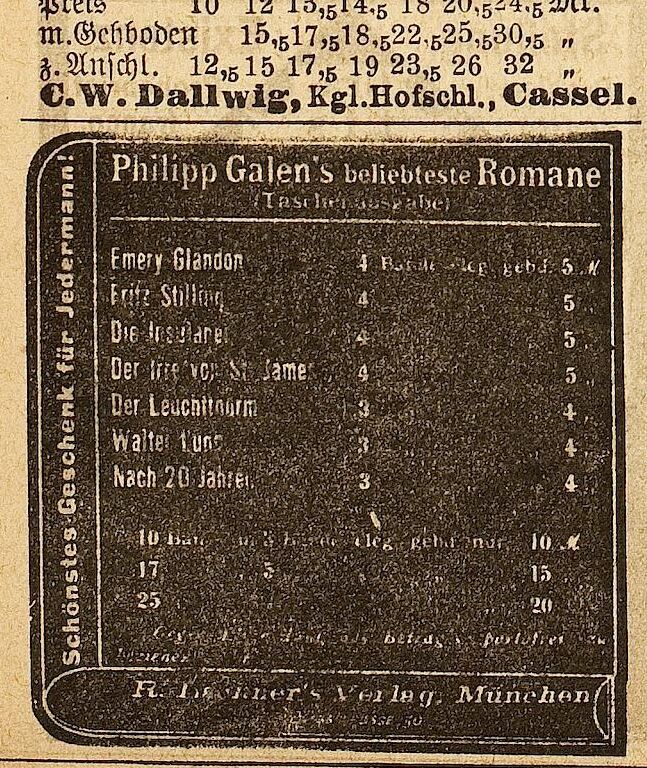 Preis 10 12 13,5 14,5 18 20,5 24,5 Mk.
m.Gehboden 15,5 17,5 18,5 22,5 25,5 30,5 „
z.Anschl. 12,5 15 17,5 19 23,5 26 32 „
C.W. Dallwig, Kgl.Hofschl., Cassel.
Schönstes Geschenk für Jedermann!
Philipp Galen's beliebteste Romane
(Taschenausgabe)
Emery Glandon 4 Bände eleg. gebd. 5 M
Fritz Stilling 4 5 „
Die Insulaner 4 5 „
Der Irre von St. James 4 5 „
Der Leuchtthurm 3 4 „
Walter 3 4 „
Nach 20 Jahren 3 4 „
10 Bände in 3 Bände eleg. gebd. nur 10 M
17 5 15
25 20
Betrag portofrei
Verlag, München